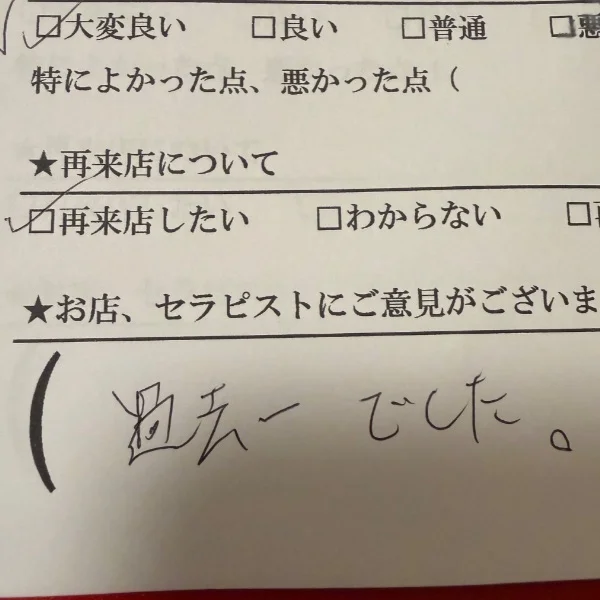 □大変良い □良い □普通 □悪
特によかった点、悪かった点（
★再来店について
□再来店したい □わからない □再
★お店、セラピストにご意見がございま
（ 過去一 でした。